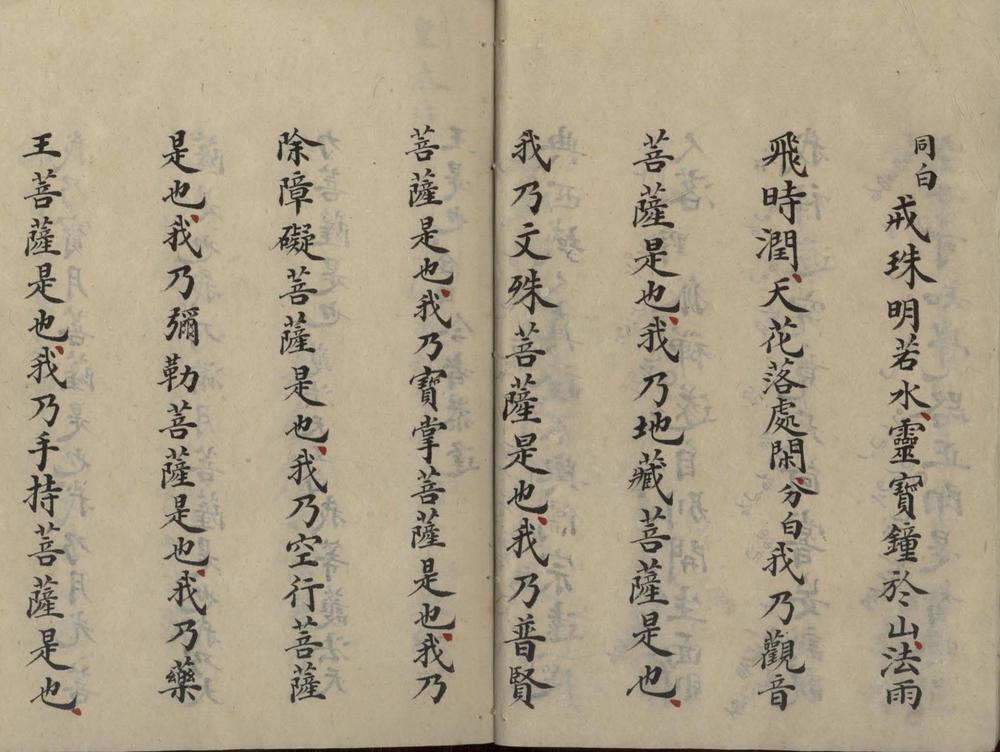 同白 戒珠明若水、靈寶鐘於山、法雨
飛時潤、天花落處閑、分白我乃觀音
菩薩是也、我乃地藏菩薩是也、
我乃文殊菩薩是也、我乃普賢
菩薩是也、我乃寶掌菩薩是也、我乃
除障礙菩薩是也、我乃空行菩薩
是也、我乃彌勒菩薩是也、我乃藥
王菩薩是也、我乃手持菩薩是也、